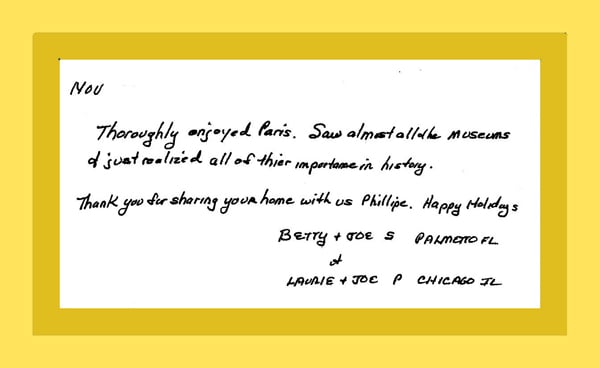 Nov
Thoroughly enjoyed Paris. Saw almost all the museums
& just realized all of thier importance in history.
Thank you for sharing your home with us Phillipe. Happy Holidays
BETTY + JOE S PALMETTO FL
&
LAURIE + JOE P CHICAGO IL